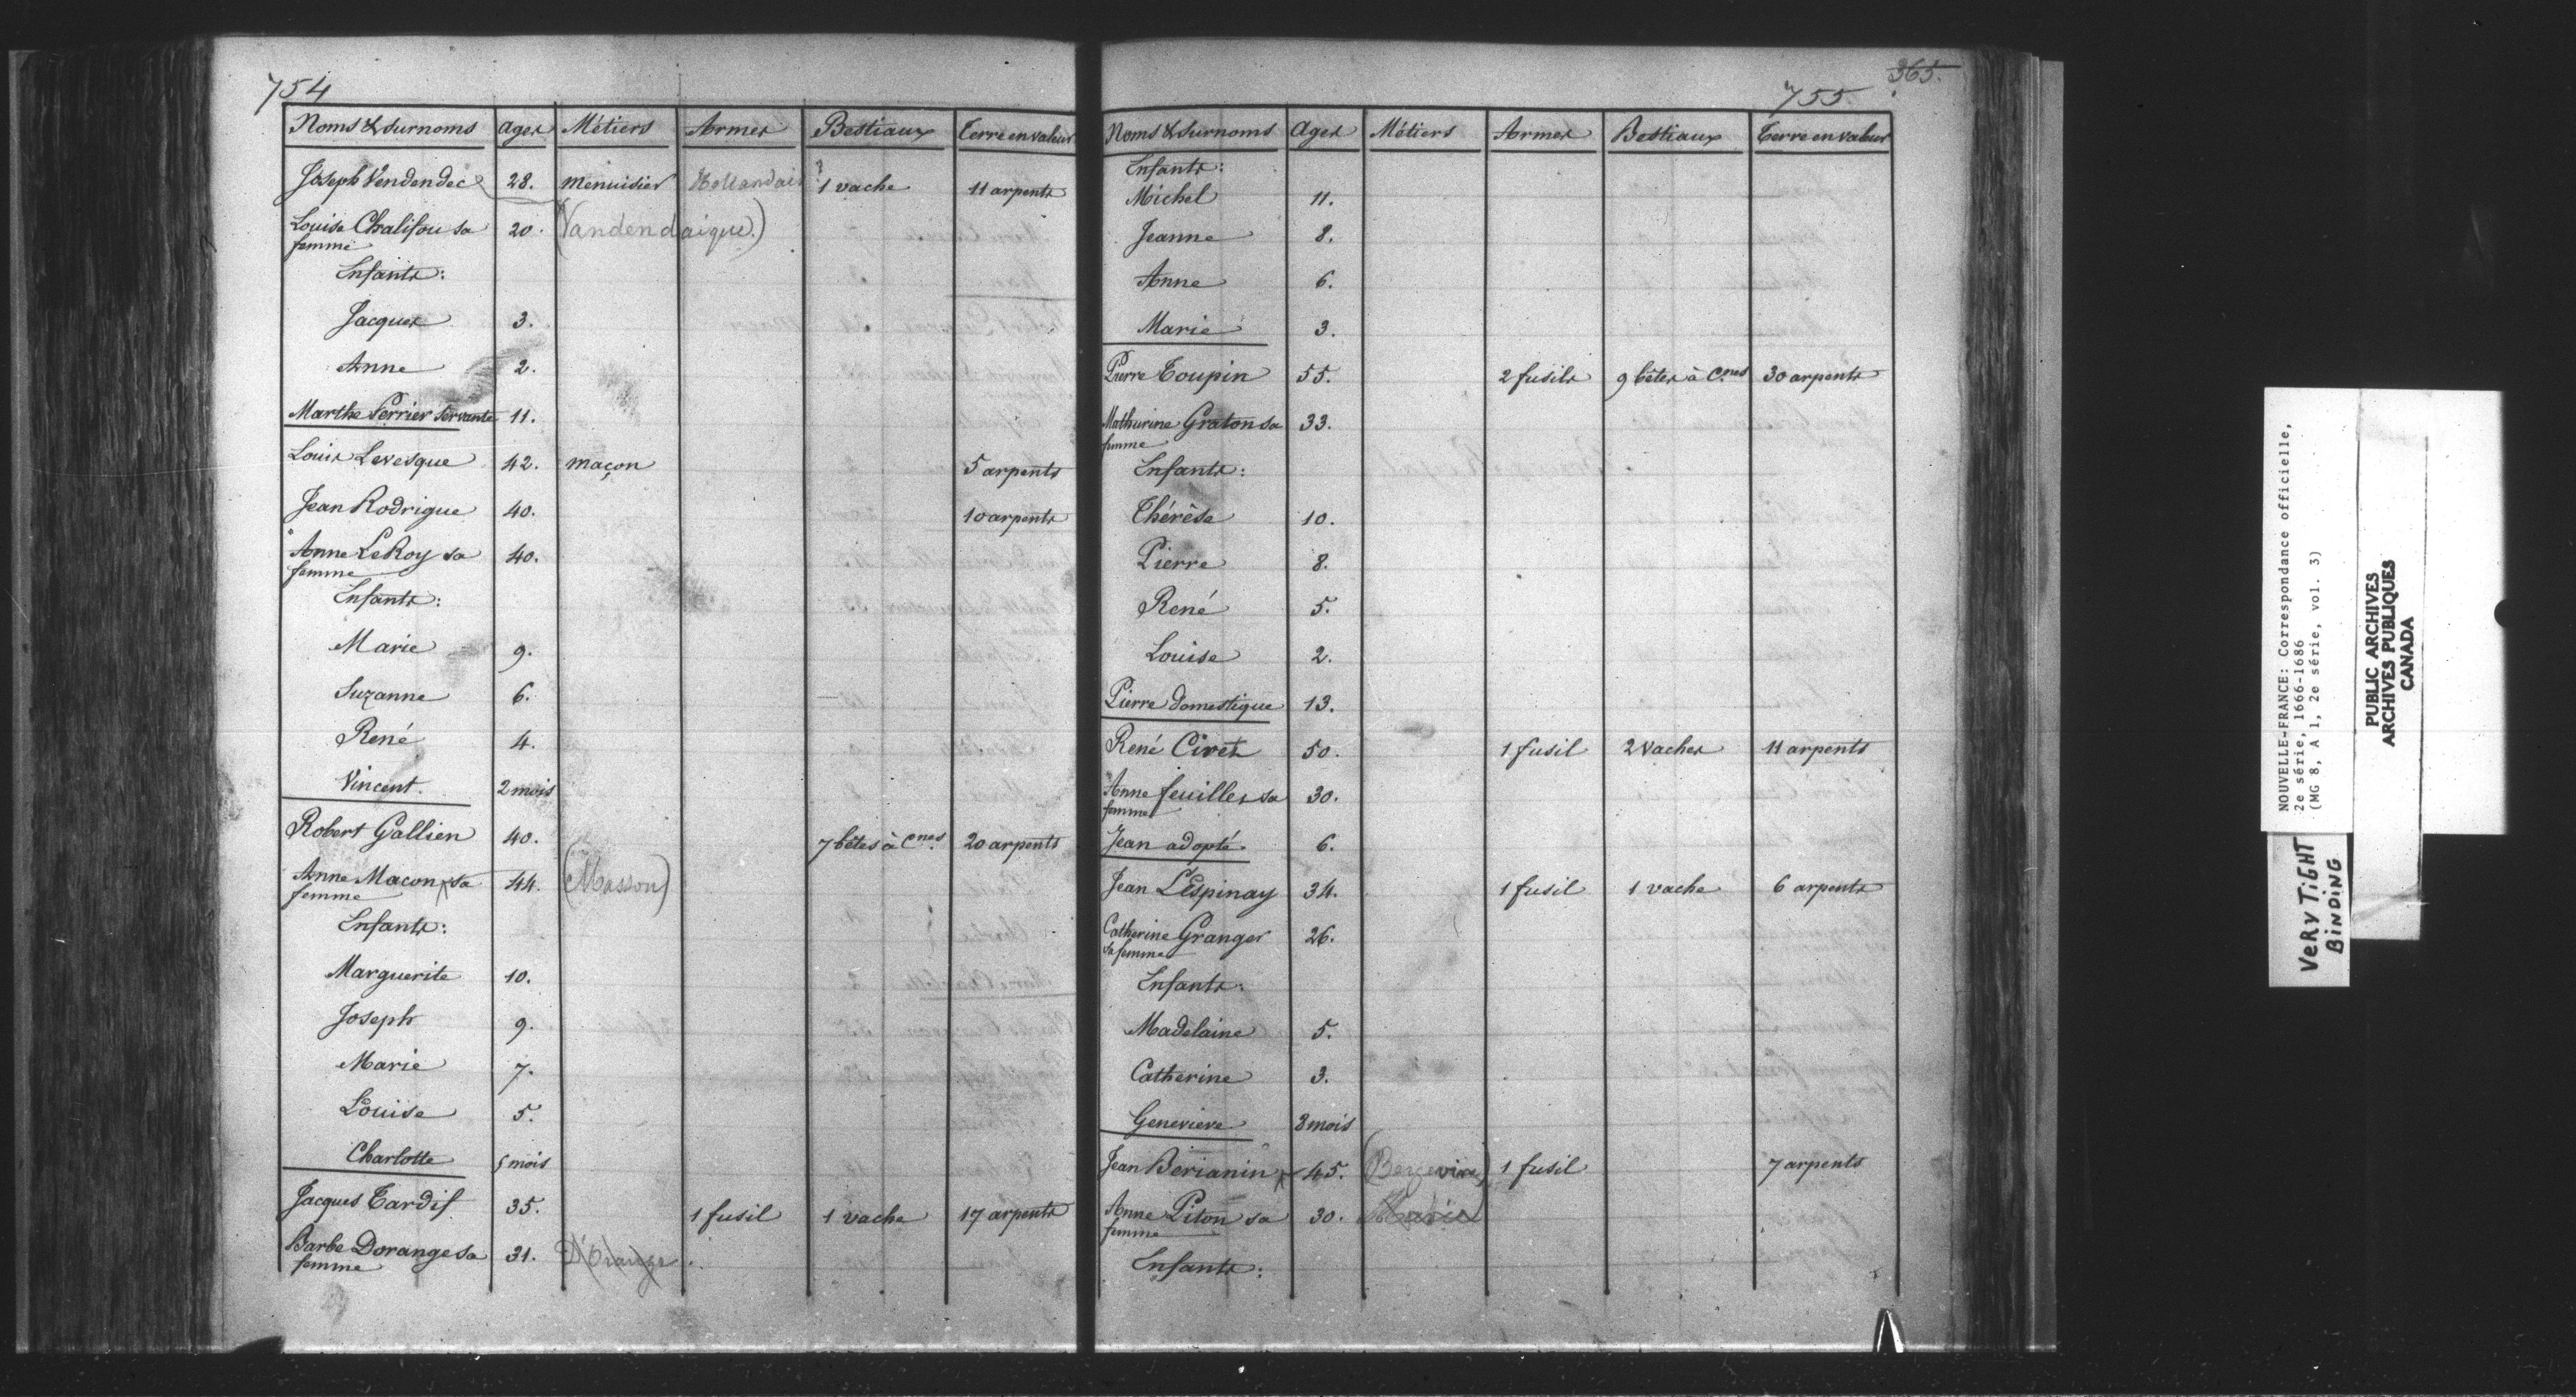 754
Noms & surnoms Ages Métiers Armes Bestiaux Terre en valeur
Joseph Vendendec 28. menuisier Hollandais ? 1 vache 11 arpents
Louise Chalifou sa femme 20. (Vandendaigue.)
Enfants:
Jacques 3.
Anne 2.
Marthe Perrier servante 11.
Louis Levesque 42. maçon 5 arpents
Jean Rodrigue 40. 10 arpents
Anne LeRoy sa femme 40.
Enfants:
Marie 9.
Suzanne 6.
René 4.
Vincent. 2 mois
Robert Gallien 40. 7 bêtes à Cnes. 20 arpents
Anne Macon x sa femme 44. (Masson)
Enfants:
Marguerite 10.
Joseph 9.
Marie 7.
Louise 5.
Charlotte 5 mois
Jacques Tardif 35. 1 fusil 1 vache 17 arpents
Barbe Dorange sa femme 31. D'Orange
365.
755.
Noms & surnoms Ages Métiers Armes Bestiaux Terre en valeur
Enfants:
Michel 11.
Jeanne 8.
Anne 6.
Marie 3.
Pierre Toupin 55. 2 fusils 9 bêtes à Cnes 30 arpents
Mathurine Graton sa femme 33.
Enfants:
Thérêse 10.
Pierre 8.
René 5.
Louise 2.
Pierre domestique 13.
René Civet 50. 1 fusil 2 vaches 11 arpents
Anne feuilles sa femme 30.
Jean adopté. 6.
Jean L'Espinay 34. 1 fusil 1 vache 6 arpents
Catherine Granger sa femme 26.
Enfants:
Madelaine 5.
Catherine 3.
Genevieve 8 mois
Jean Berianin x 45. (Bergevin) 1 fusil 7 arpents
Anne Piton sa femme 30. Marie
Enfants:
NOUVELLE-FRANCE: Correspondance officielle,
2e série, 1666-1686
(MG 8, A 1, 2e série, vol. 3)
PUBLIC ARCHIVES
ARCHIVES PUBLIQUES
CANADA
VERY TIGHT
BINDING